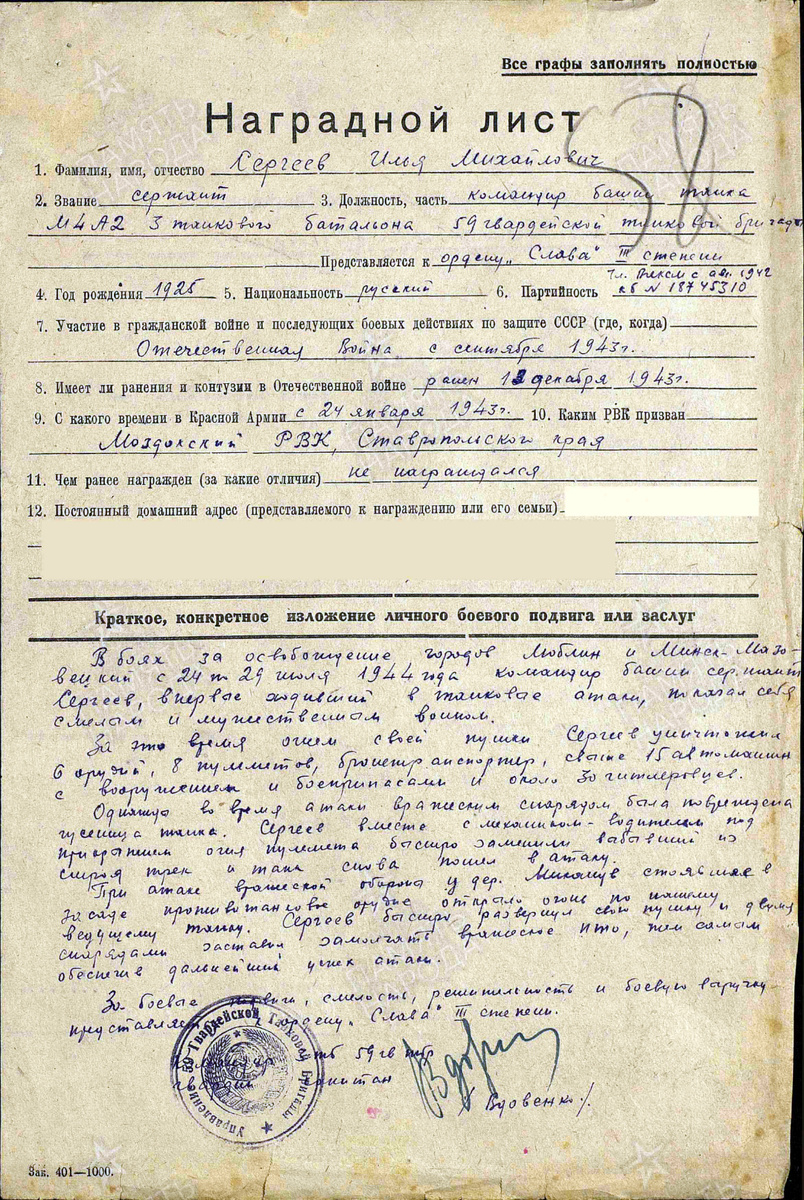 Все графы заполнять полностью
58
Наградной лист
1. Фамилия, имя, отчество Сергеев Илья Михайлович
2. Звание сержант 3. Должность, часть командир башни танка
М4А2 3 танкового батальона 59 гвардейской танковой бригады
Представляется к ордену „Слава" III степени
Чл. ВЛКСМ с авг. 1942
4. Год рождения 1925 5. Национальность русский 6. Партийность кб N 18745310
7. Участие в гражданской войне и последующих боевых действиях по защите СССР (где, когда)
Отечественная Война с сентября 1943 г.
8. Имеет ли ранения и контузии в Отечественной войне ранен 12 декабря 1943 г.
9. С какого времени в Красной Армии с 24 января 1943 г. 10. Каким РВК призван
Моздокский РВК, Ставропольского края
11. Чем ранее награжден (за какие отличия) не награждался
12. Постоянный домашний адрес (представляемого к награждению или его семьи)
Краткое, конкретное изложение личного боевого подвига или заслуг
В боях за освобождение городов Люблин и Минск-Мазо-
вецкий с 24 по 29 июля 1944 года командир башни сержант
Сергеев, впервые ходивший в танковые атаки, показал себя
смелым и мужественным воином.
За это время огнем своей пушки Сергеев уничтожил
6 орудий, 8 пулеметов, бронетранспортер, свыше 15 автомашин
с вооружением и боеприпасами и около 30 гитлеровцев.
Однажды во время атаки вражеским снарядом была повреждена
гусеница танка. Сергеев вместе с механиком-водителем под
прикрытием огня пулемета быстро заменили выбывший из
строя трек и танк снова пошел в атаку.
При атаке вражеской обороны у дер. стоявшее в
засаде противотанковое орудие открыло огонь по нашему
ведущему танку. Сергеев быстро развернул свою пушку и двумя
снарядами заставил замолчать вражеское ПТО, тем самым
обеспечив дальнейший успех атаки.
За боевые подвиги, смелость, решительность и боевую выручку
представляется к ордену „Слава" III степени.
Командир тб 59 гв тбр
гвардии капитан
/Вдовенко/.
Управление 59 Гвардейской Танковой Бригады
Зак. 401—1000.